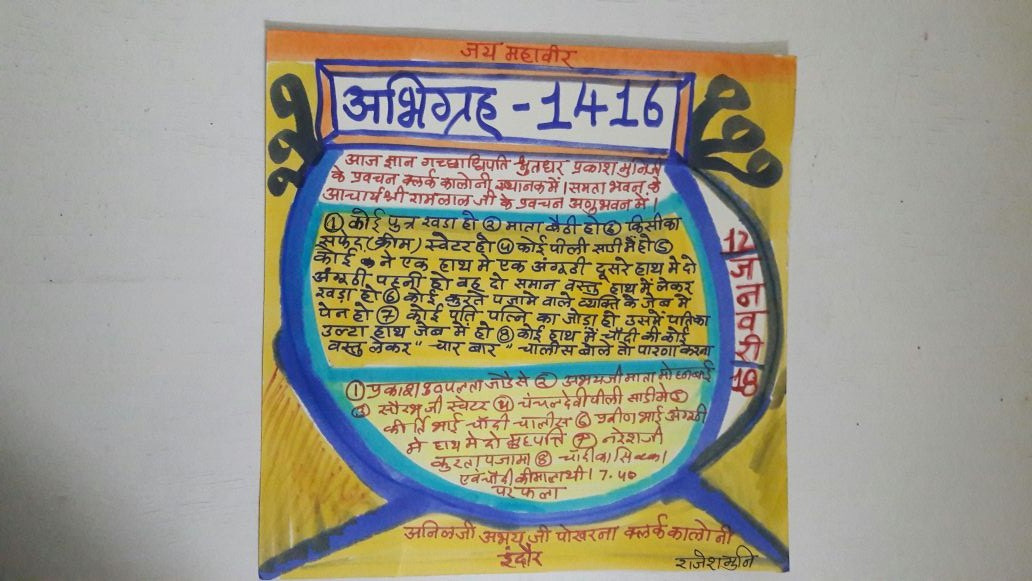 जय महावीर
अभिग्रह - 1416
आज ज्ञान गच्छाधिपति श्रुतधर प्रकाश मुनिजी
के प्रवचन क्लर्क कालोनी स्थानक में। समता भवन के
आचार्य श्री रामलाल जी के प्रवचन अणुभवन में।
① कोई पुत्र खडा हो ② माता बैठी हो ③ किसीका
सफेद (क्रीम) स्वेटर हो ④ कोई पीली साडी में हो ⑤
कोई ने एक हाथ मे एक अंगूठी दूसरे हाथ मे दो
अंगूठी पहनी हो वह दो समान वस्तु हाथ में लेकर
खडा हो ⑥ कोई कुरते पजामे वाले व्यक्ति के जेब मे
पेन हो ⑦ कोई पति पत्नि का जोडा हो उसमें पतिका
उल्टा हाथ जेब में हो ⑧ कोई हाथ में चाँदी की कोई
वस्तु लेकर " चार बार " चालीस बोले तो पारना करना
① प्रकाश जोडे से ② अभयजी माता
③ सौरभ जी स्वेटर ④ चंचलदेवी पीली साडी मे ⑤
कीर्ति भाई चाँदी चालीस ⑥ प्रवीण भाई अंगूठी
मे हाथ मे दो मुहपत्ति ⑦ नरेशजी
कुरता पजामा ⑧ चाँदी का सिक्का
एवं चाँदी की माला थी। 7.50
पर फला
12 जनवरी 18
अनिलजी अभय जी पोखरना क्लर्क कालोनी
इंदौर
राजेश मुनि